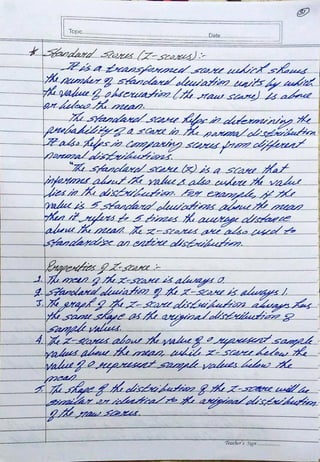 Topic
Date
* Standard Scores (Z-scores) :-
It is a transformed score which shows
the number of standard deviation units by which
the value of observation (the raw score) is above
or below the mean.
The standard score helps in determining the
probability of a score in the normal distribution
It also helps in comparing scores from different
normal distributions.
"The standard score (z) is a score that
informes about the value & also where the value
lies in the distribution. For example, if the
value is 5 standard deviations above the mean
then it refers to 5 times the average distance
above the mean. The z-scores are also used to
standardize an entire distribution.
Properties of Z-score :-
1. The mean of the z-score is always 0
2. Standard deviation of the z-score is always 1.
3. The graph of the z-score distribution always has
the same shape as the original distribution of
sample values.
4. The z-scores above the value of 0 represent sample
values above the mean, while z-score below the
value of 0 represent sample values below the
mean.
5. The shape of the distribution of the z-score will be
similar or identical to the original distribution
of the raw scores.
Teacher's Sign